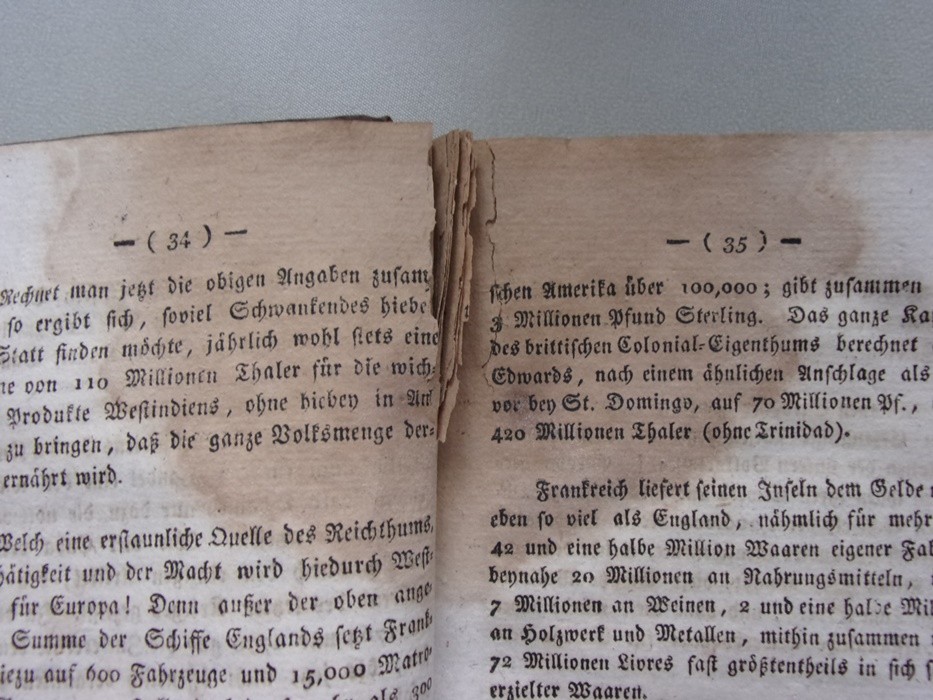 — ( 34 ) —
Rechnet man jetzt die obigen Angaben zusam
so ergibt sich, soviel Schwankendes hiebe
Statt finden möchte, jährlich wohl stets eine
ne von 110 Millionen Thaler für die wich-
Produkte Westindiens, ohne hiebey in An
zu bringen, daß die ganze Volksmenge der-
ernährt wird.
Welch eine erstaunliche Quelle des Reichthums,
hätigkeit und der Macht wird hiedurch West-
für Europa! Denn außer der oben ange
Summe der Schiffe Englands setzt Frank-
iezu auf 600 Fahrzeuge und 15,000 Matro-
als 300
— ( 35 ) —
schen Amerika über 100,000; gibt zusammen
3 Millionen Pfund Sterling. Das ganze Ka
des brittischen Colonial-Eigenthums berechnet
Edwards, nach einem ähnlichen Anschlage als
vor bey St. Domingo, auf 70 Millionen Pf.,
420 Millionen Thaler (ohne Trinidad).
Frankreich liefert seinen Inseln dem Gelde
eben so viel als England, nähmlich für mehr
42 und eine halbe Million Waaren eigener Fab
beynahe 20 Millionen an Nahrungsmitteln,
7 Millionen an Weinen, 2 und eine halbe Mil
an Holzwerk und Metallen, mithin zusammen
72 Millionen Livres fast größtentheils in sich s
erzielter Waaren.